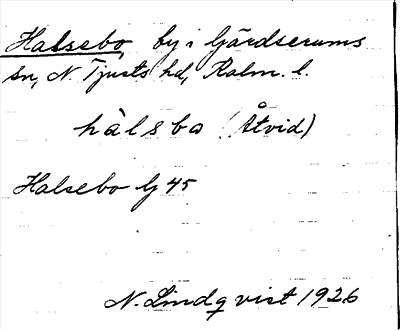 Halsebo, by i Gärdserums
sn, N. Tjusts hd, Kalm. l.
hàlsbo (Åtvid)
Halsebo G 45
N. Lindqvist 1926